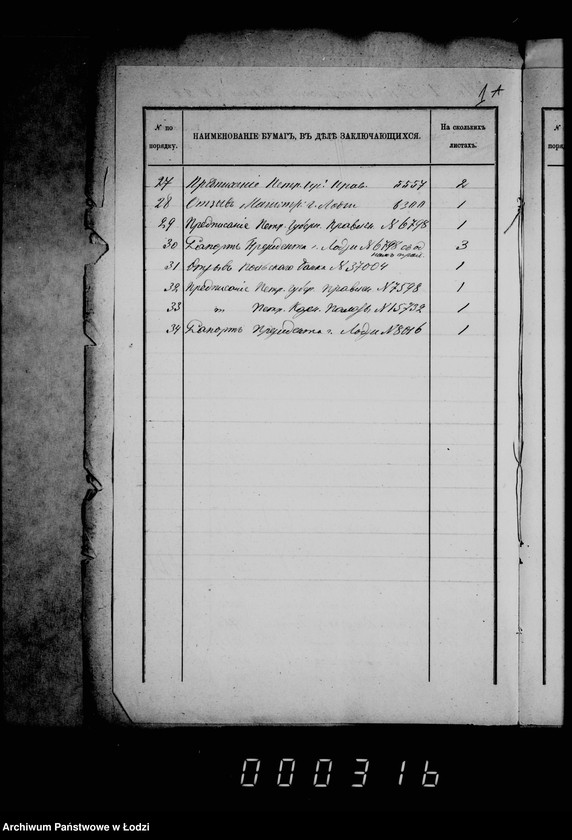 1 A
№ по порядку.
НАИМЕНОВАНІЕ БУМАГЪ, ВЪ ДѢЛѢ ЗАКЛЮЧАЮЩИХСЯ.
На сколькихъ листахъ.
27 Предписаніе Петр. Губ. Прав. 5557 2
28 Отзывъ Магистр. г. Лодзи 6300 1
29 Предписаніе Петр. Губерн. Правлен. № 6798 1
30 Рапортъ Президента г. Лодзи № 6798 3
31 Отзывъ Польскаго Банка № 37004 1
32 Предписаніе Петр. Губр. Правлен. № 7598 1
33 " Петр. Казен. Палаты № 15732 1
34 Рапортъ Президента г. Лодзи № 8016 1
№
поряд
000316
Archiwum Państwowe w Łodzi